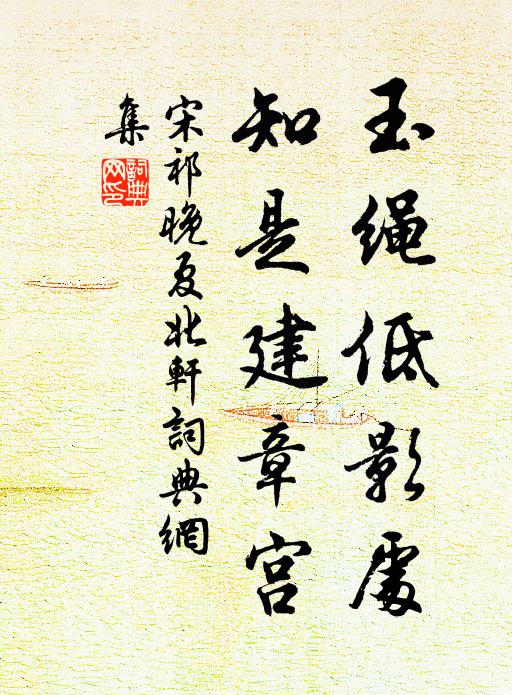 玉绳低影處
知是建章宫
宋祁晚夏北軒詞典網
集
詞典
网印